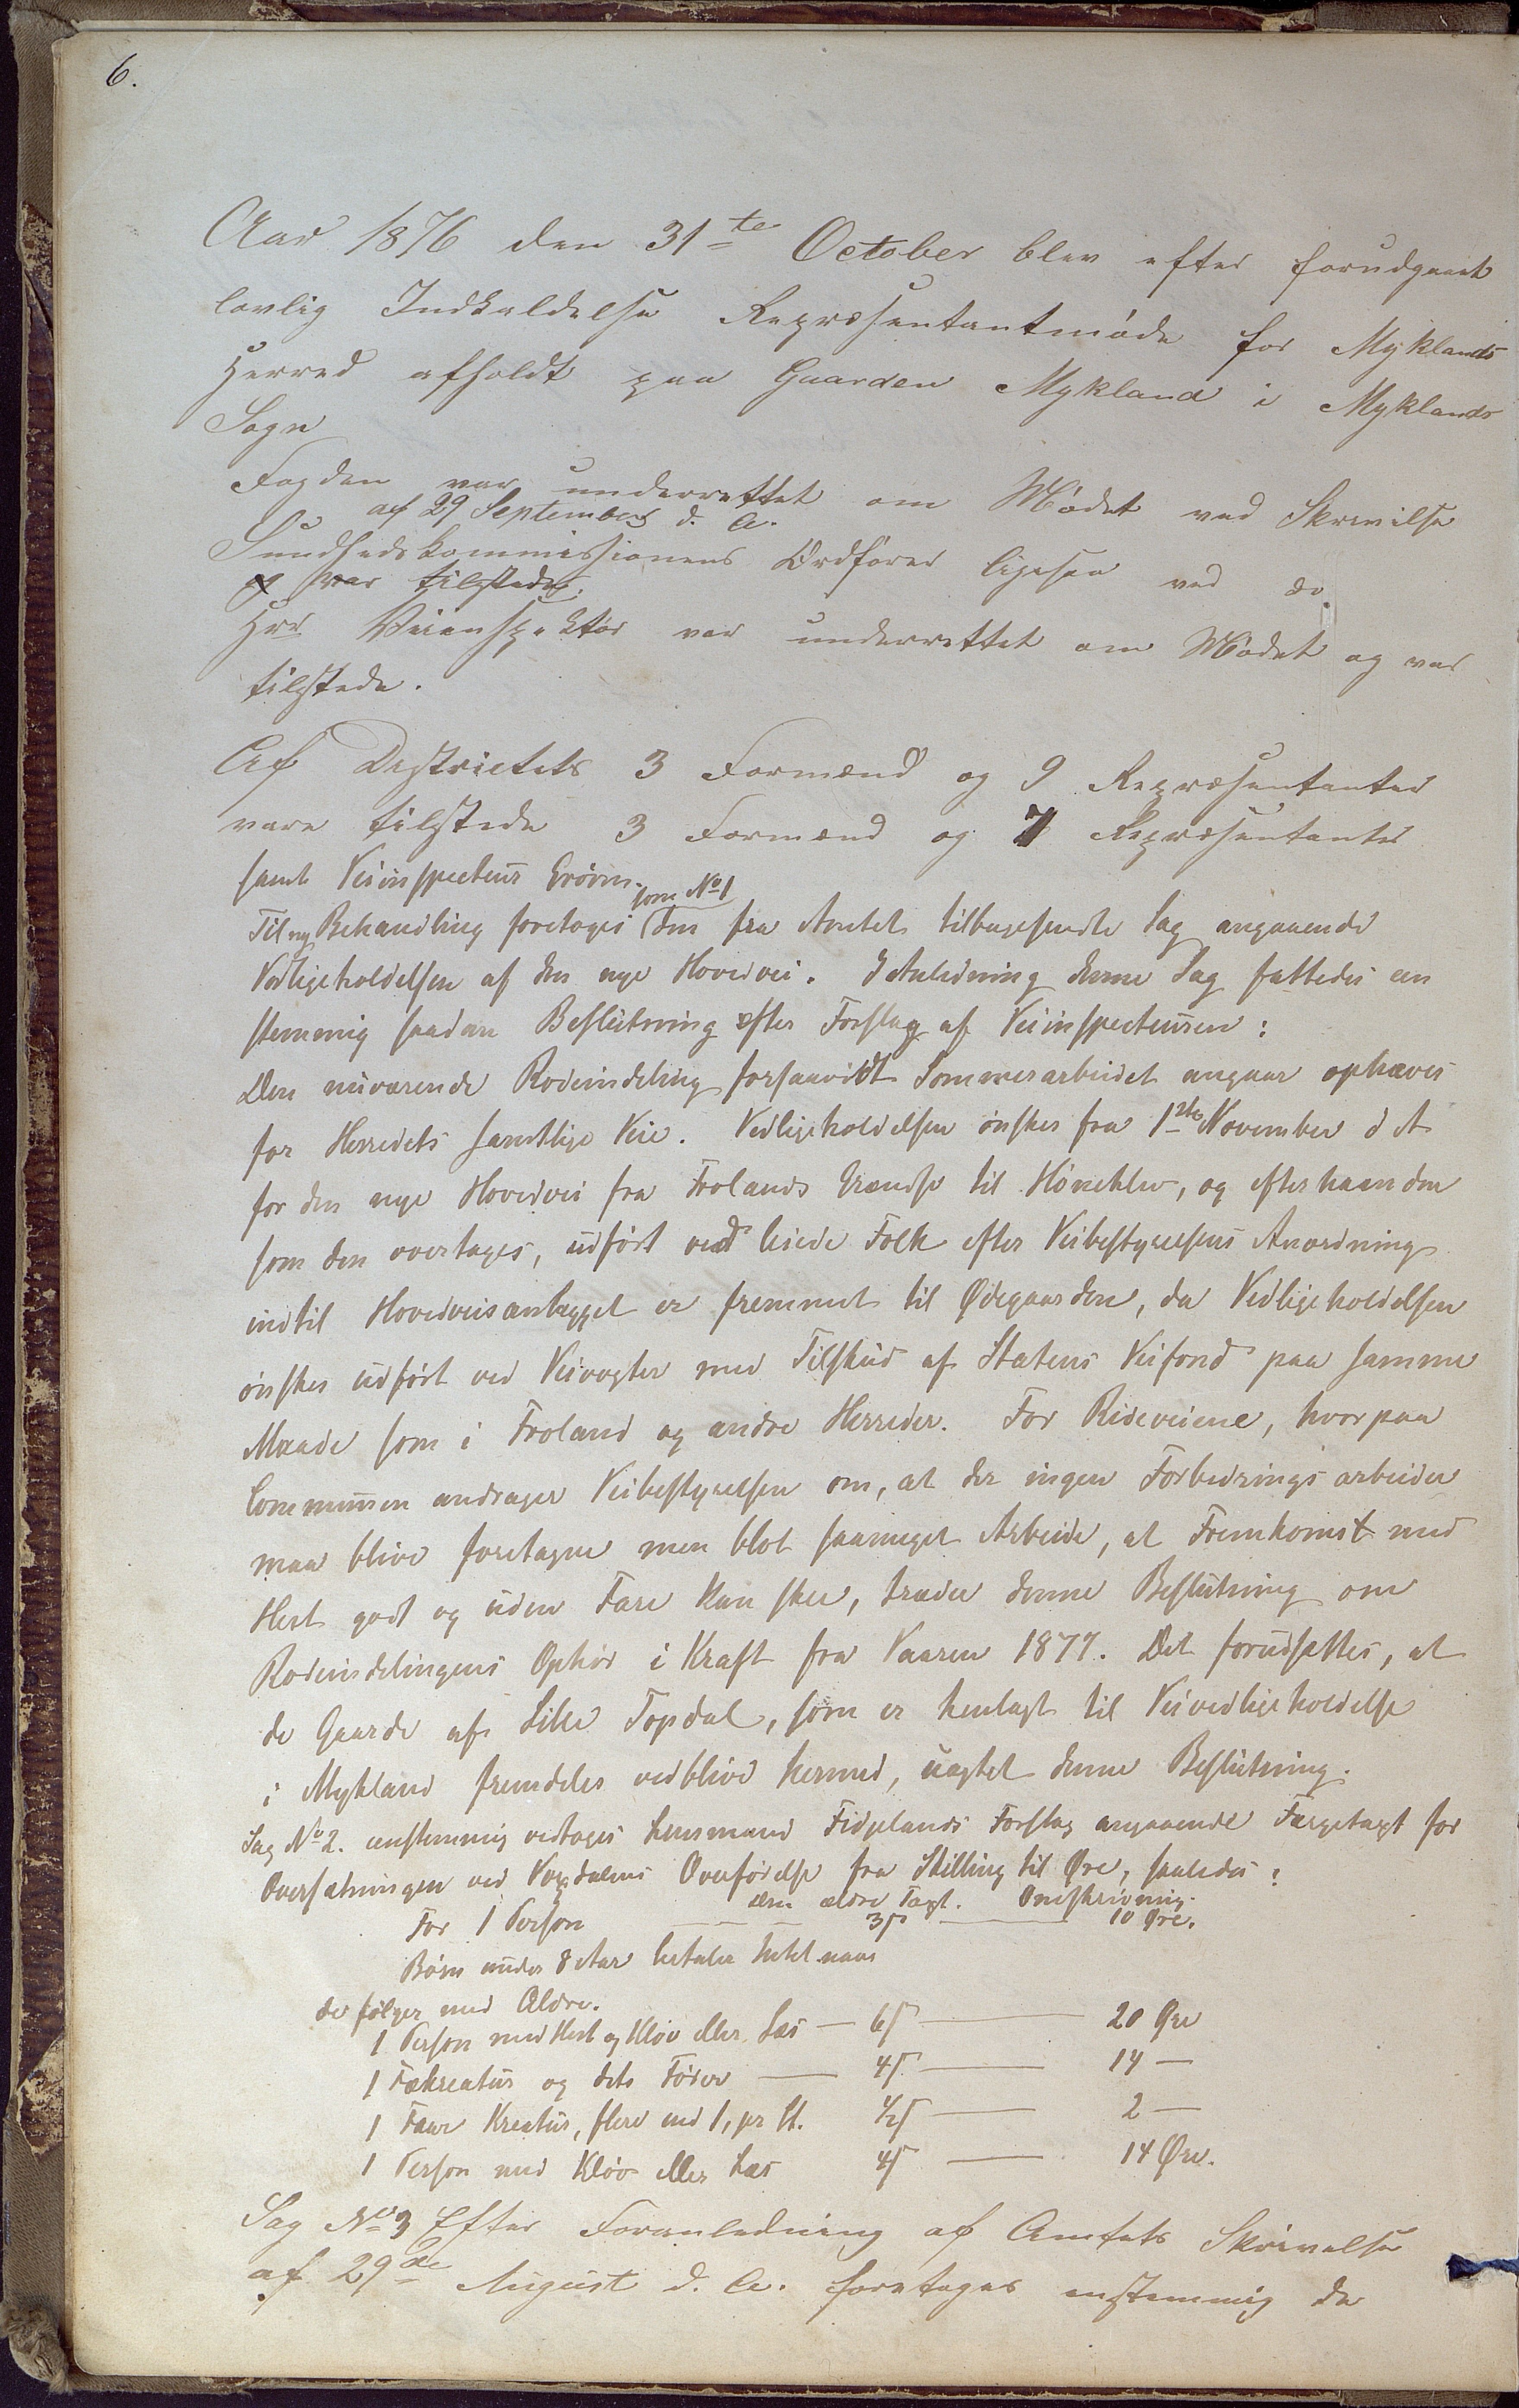 6.
Aar 1876 den 31te October blev efter forudgaaet
lovlig Indkaldelse Repræsentantmøde for Myklands
Herred afholdt paa Gaarden Mykland i Myklands
Sogn
Fogden var underrettet om Mødet ved Skrivelse
af 29 September d. A.
Sundhedskommissionens Ordfører ligesaa ved do.
var tilstede.
Hrr Veiinspektør var underrettet om Mødet og var
tilstede.
Af Districtets 3 Formænd og 9 Repræsentanter
vare tilstede 3 Formænd og 7 Repræsentanter
samt Veiinspecteur Grøvns.
som No 1
Til ny Behandling foretoges den fra Amtet tilbagesendte Sag angaaende
Vedligeholdelsen af den nye Hovedvei. I Anledning denne Sag fattedes een
stemmig saadan Beslutning efter Forslag af Veiinspecteuren:
Den nuværende Rodeinddeling forsaavidt Sommerarbeidet angaar ophæves
for Herredets samtlige Veie. Vedligeholdelsen ønskes fra 1ste November d A
for den nye Hovedvei fra Frolands Grændse til Høneklev, og efterhaanden
som den overtages, udført ved leiede Folk efter Veibestyrelsens Anordning
indtil Hovedveisanlægget er fremmet til Ødegaarden, da Vedligeholdelsen
ønskes udført ved Veivogter med Tilskud af Statens Veifond paa samme
Maade som i Froland og andre Herreder. For Rideveiene, hvorpaa
Communen andrager Veibestyrelsen om, at der ingen Forbedringsarbeider
maa blive foretagne men blot saameget Arbeide, at Fremkomst med
Hest godt og uden Fare kan skee, træder denne Beslutning om
Rodeinddelingens Ophør i Kraft fra Vaaren 1877. Det forudsættes, at
de Gaarde af Lille Topdal, som er henlagt til Veivedligeholdelse
i Mykland fremdeles vedblive hermed, uagtet denne Beslutning.
Sag No 2. eenstemmig vedtoges Lensmand Fidjelands Forslag angaaende Færgetaxt for
Oversætningen ved Vegdalens Overførelse fra Skilling til Øre, saaledes:
den ældre Taxt. Omskrivning.
For 1 Person 3ß 10 Øre.
Børn under 8 Aar betaler Intet naar
de følger med Ældre.
1 Person med Hest og Kløv eller Læs 6ß 20 Øre
1 Fækreatur og dets Fører 4ß 14 —
1 Faar Kreatur, flere end 1, pr St. ½ß 2 —
1 Person med Kløv eller Læs 4ß 14 Øre.
Sag No 3 Efter Foranledning af Amtets Skrivelse
af 29de August d. A. foretoges enstemmig de